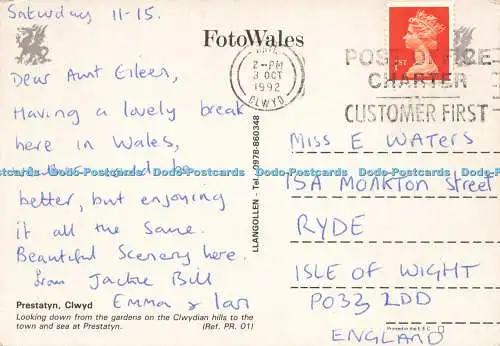 Saturday 11-15.
Dear Aunt Eileen,
Having a lovely break
here in Wales,
be
better, but enjoying
it all the same.
Beautiful Scenery here.
from Jackie Bill
Emma & Ian
Prestatyn, Clwyd
Looking down from the gardens on the Clwydian hills to the
town and sea at Prestatyn. (Ref. PR. 01)
FotoWales
LLANGOLLEN - Tel. 0978-860348
2-PM
3 OCT
1992
CLWYD
1ST
POST OFFICE
CHARTER
CUSTOMER FIRST
MISS E WATERS
15A MONKTON Street
RYDE
ISLE OF WIGHT
PO33 2DD
ENGLAND
Printed in the E.E.C.
Dodo-Postcards Dodo-Postcards Dodo-Postcards Dodo-Postcards Dodo-Postcards